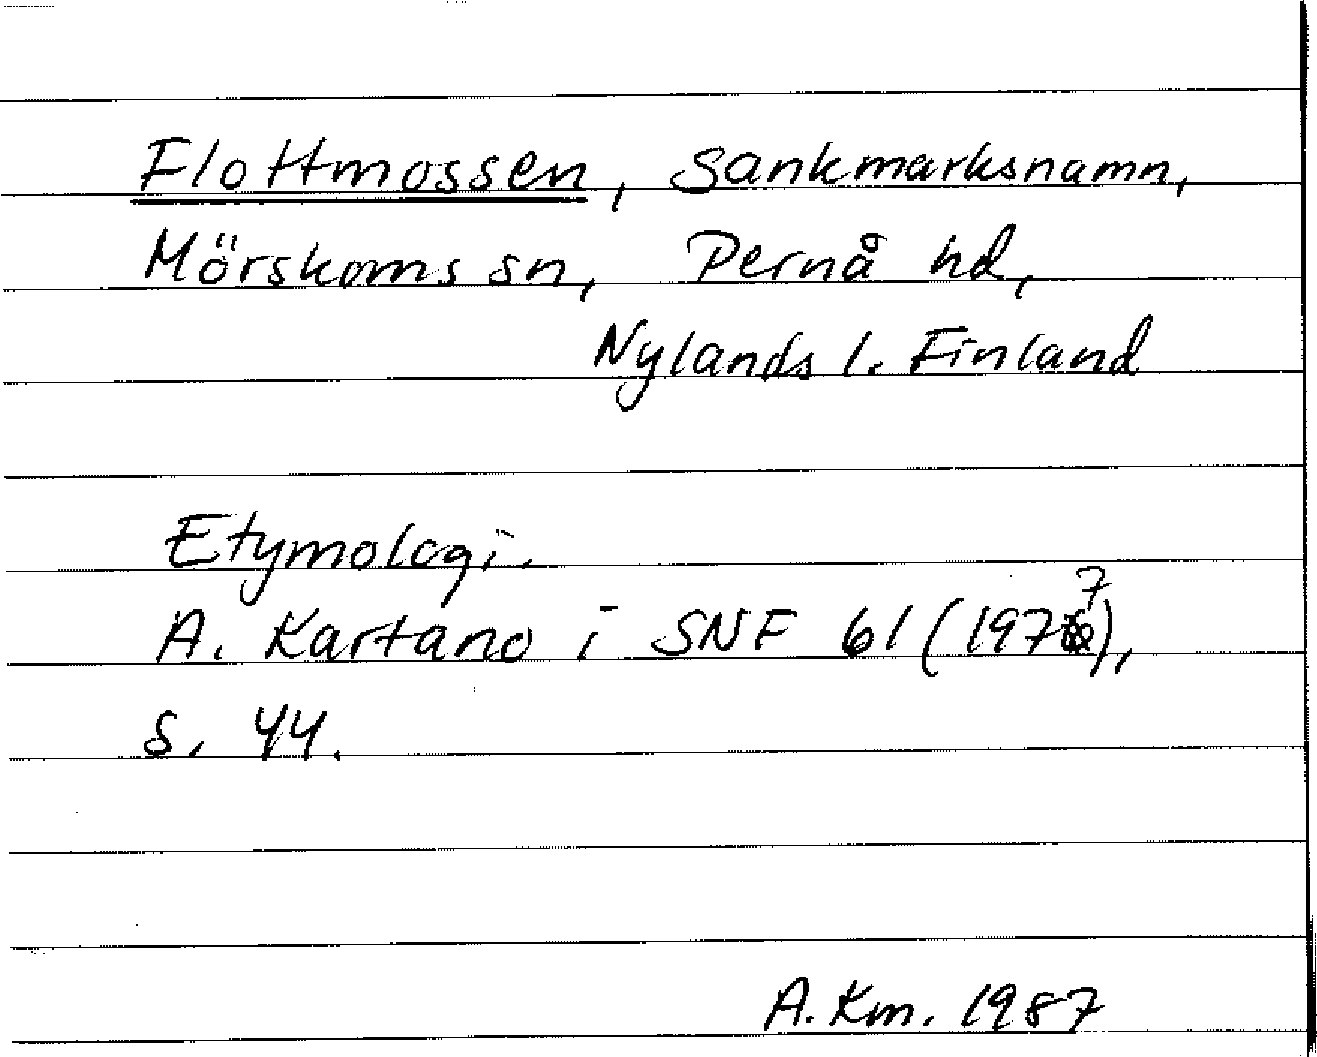 Flottmossen, Sankmarksnamn,
Mörskoms sn, Pernå hd,
Nylands l. Finland
Etymologi.
A. Kartano i SNF 61 (1977),
s. 44.
A.Km. 1987